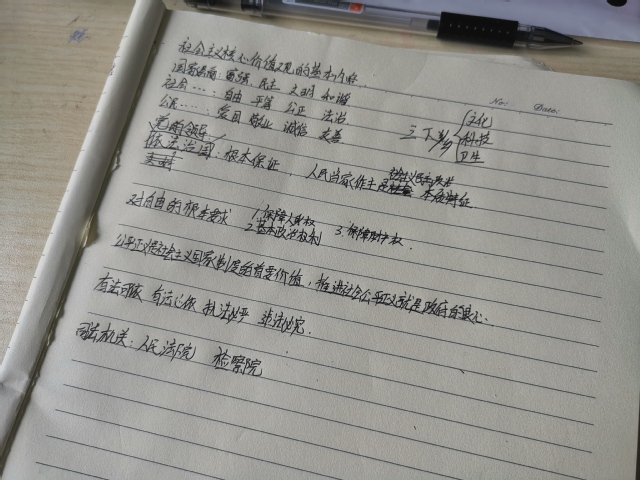 社会主义核心价值观的基本内容.
国家层面 富强 民主 文明 和谐
社会……: 自由 平等 公正 法治
公民……: 爱国 敬业 诚信 友善
三下乡 文化 科技 卫生
No:
Date:
党的领导
依法治国: 根本保证. 人民当家作主是 本质特征
对自由的根本要求 1.保障人身权 2.基本政治权利 3.保障财产权.
公平正义是社会主义国家制度的首要价值, 推进社会公平正义就是政府的良心.
有法可依 有法必依 执法必严 违法必究.
司法机关: 人民法院 检察院